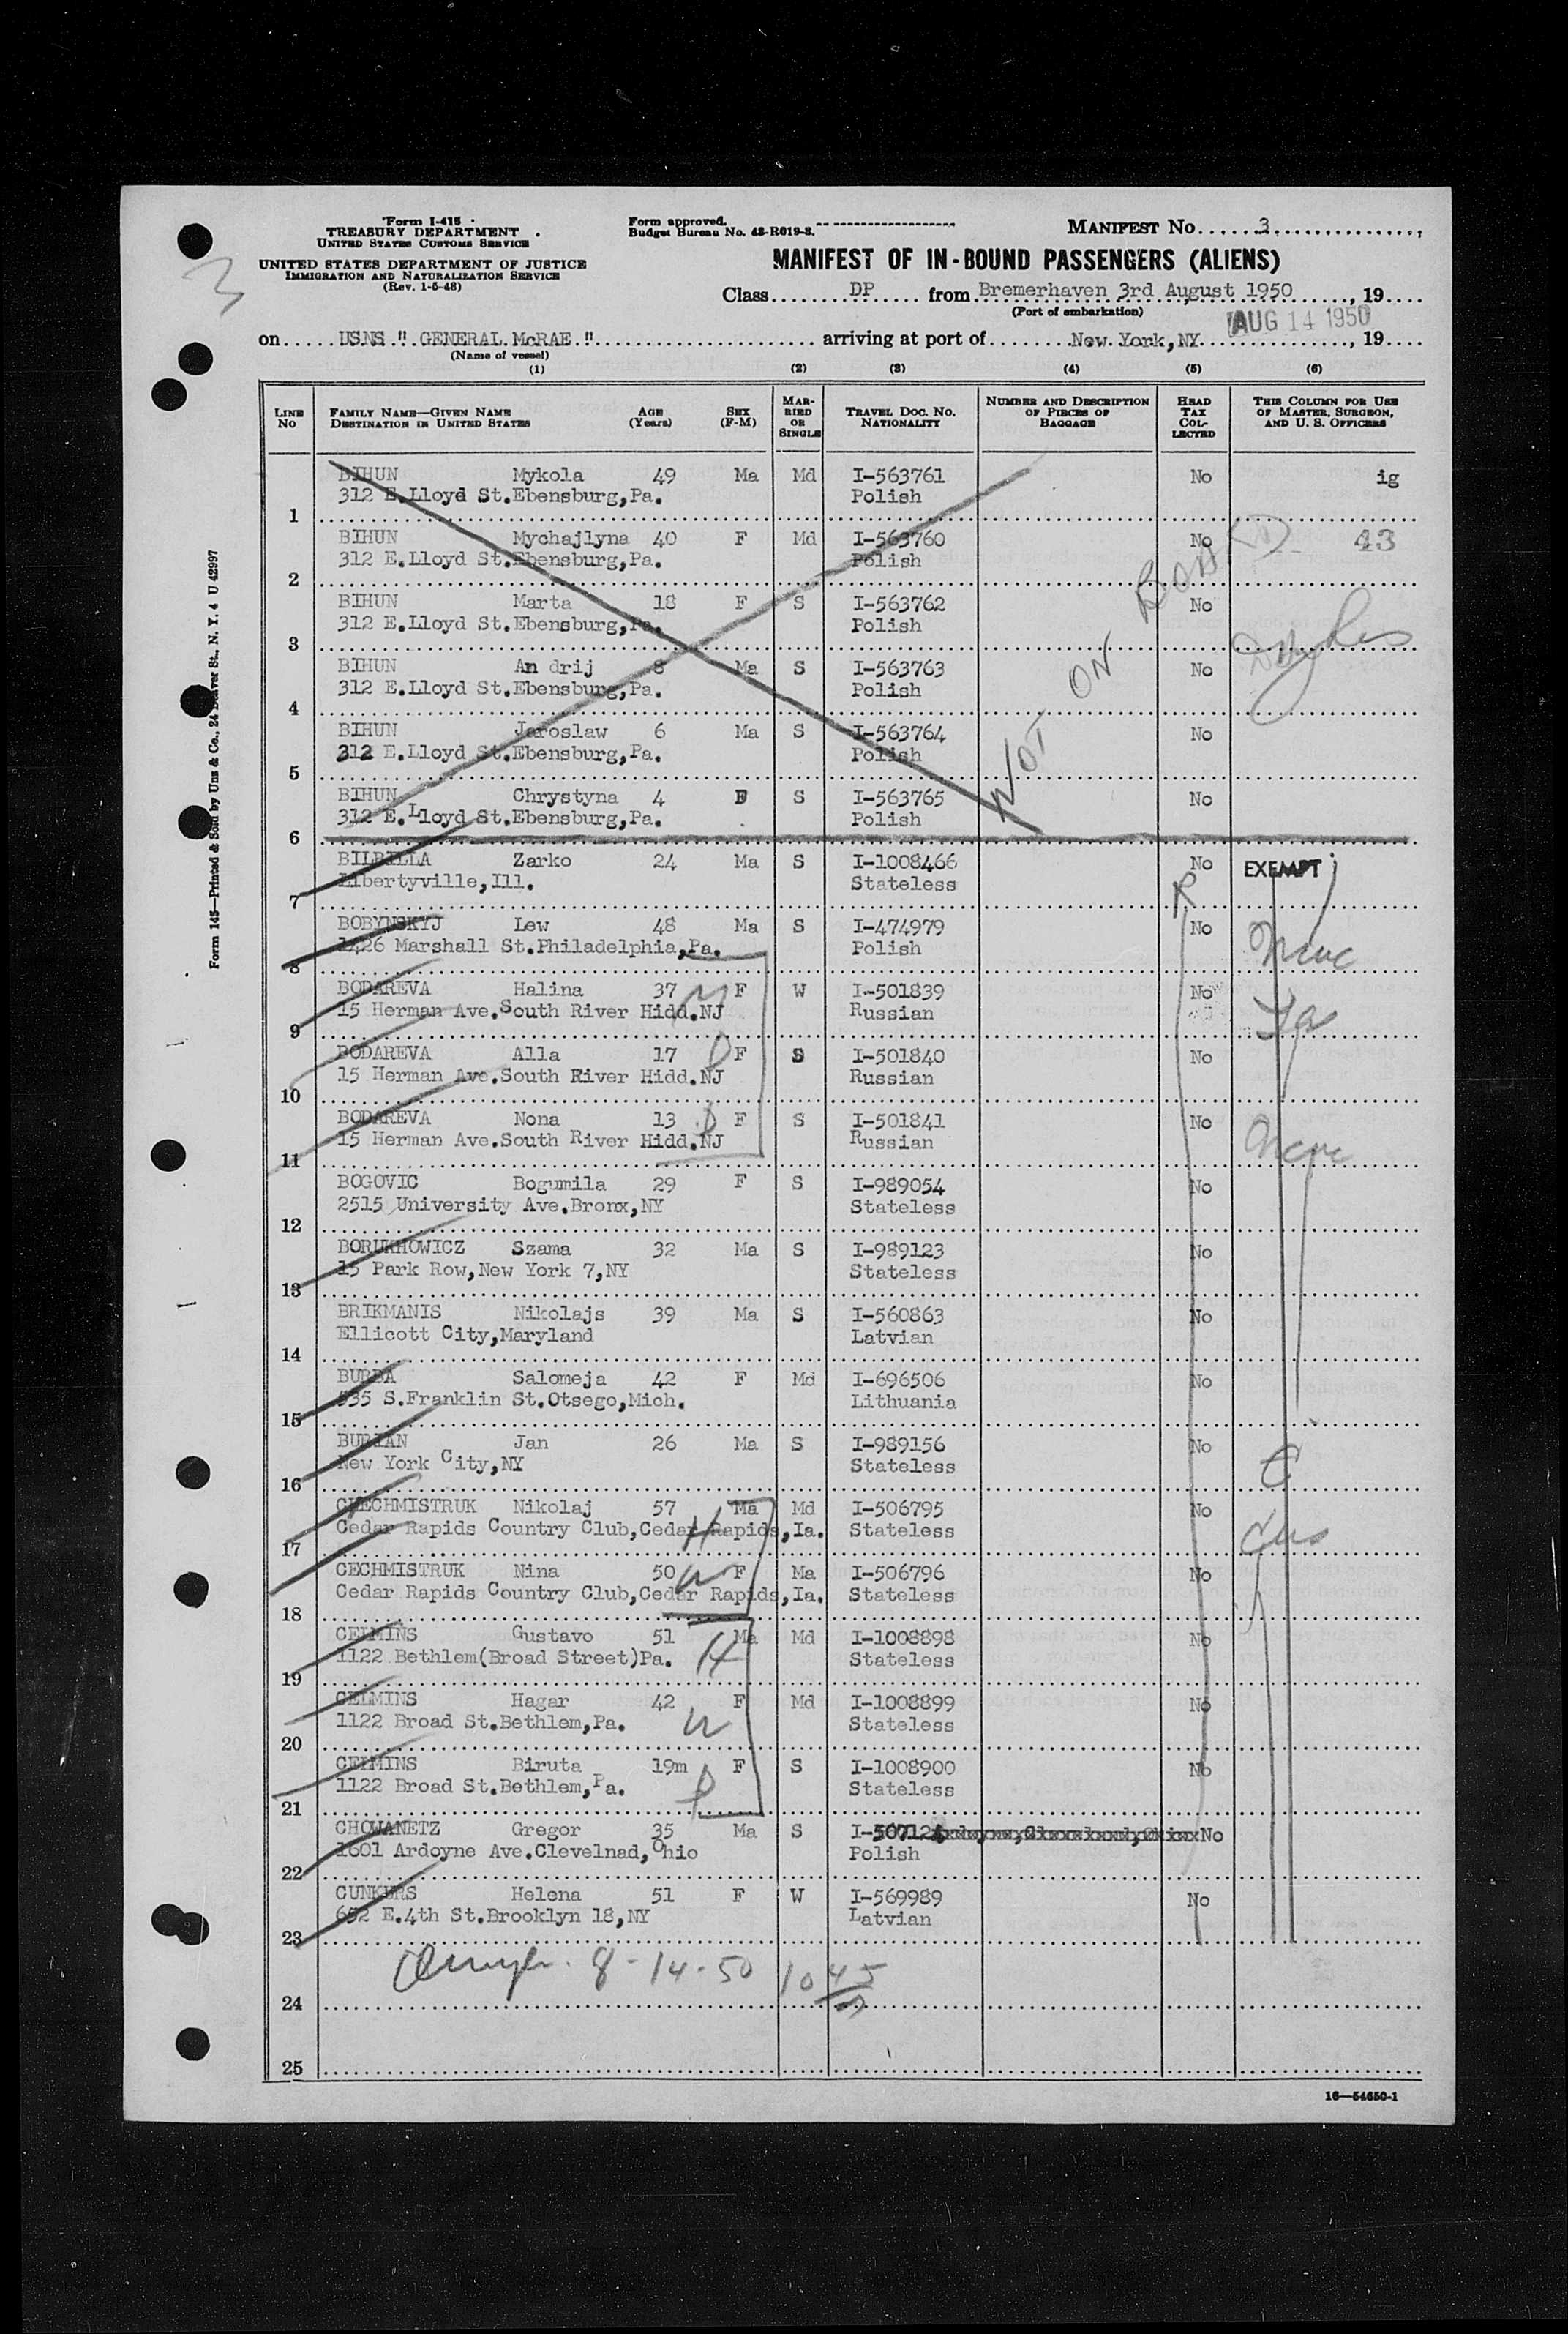 Form I-415
TREASURY DEPARTMENT
UNITED STATES CUSTOMS SERVICE
UNITED STATES DEPARTMENT OF JUSTICE
IMMIGRATION AND NATURALIZATION SERVICE
(Rev. 1-5-48)
Form approved.
Budget Bureau No. 43-R019-3.
MANIFEST No. 3
MANIFEST OF IN-BOUND PASSENGERS (ALIENS)
Class DP from Bremerhaven 3rd August 1950, 19
(Port of embarkation)
AUG 14 1950
on USNS " GENERAL McRAE " arriving at port of New York, NY, 19
(Name of vessel)
3
(1) (2) (3) (4) (5) (6)
LINE No
FAMILY NAME—GIVEN NAME AGE (Years) SEX (F-M)
DESTINATION IN UNITED STATES
MARRIED OR SINGLE
TRAVEL DOC. NO. NATIONALITY
NUMBER AND DESCRIPTION OF PIECES OF BAGGAGE
HEAD TAX COLLECTED
THIS COLUMN FOR USE OF MASTER, SURGEON, AND U. S. OFFICERS
BIHUN Mykola 49 Ma Md I-563761 No ig
312 E.Lloyd St.Ebensburg,Pa. Polish
1
BIHUN Mychajlyna 40 F Md I-563760 No 43
312 E.Lloyd St.Ebensburg,Pa. Polish
2
BIHUN Marta 18 F S I-563762 No
312 E.Lloyd St.Ebensburg,Pa. Polish
3
BIHUN An drij 8 Ma S I-563763 No
312 E.Lloyd St.Ebensburg,Pa. Polish
4
BIHUN Jaroslaw 6 Ma S I-563764 No
312 E.Lloyd St.Ebensburg,Pa. Polish
5
BIHUN Chrystyna 4 F S I-563765 No
312 E.Lloyd St.Ebensburg,Pa. Polish
6
NOT ON BOARD
BILBILLA Zarko 24 Ma S I-1008466 No EXEMPT
Libertyville,Ill. Stateless
7
R
BOBYNSKYJ Lew 48 Ma S I-474979 No
1426 Marshall St.Philadelphia,Pa. Polish
8
BODAREVA Halina 37 F W I-501839 No
15 Herman Ave.South River Hidd.NJ Russian
9
BODAREVA Alla 17 D F S I-501840 No
15 Herman Ave.South River Hidd.NJ Russian
10
BODAREVA Nona 13 D F S I-501841 No
15 Herman Ave.South River Hidd.NJ Russian
11
BOGOVIC Bogumila 29 F S I-989054 No
2515 University Ave.Bronx,NY Stateless
12
BORUKHOWICZ Szama 32 Ma S I-989123 No
15 Park Row,New York 7,NY Stateless
13
BRIKMANIS Nikolajs 39 Ma S I-560863 No
Ellicott City,Maryland Latvian
14
BURBA Salomeja 42 F Md I-696506 No
535 S.Franklin St.Otsego,Mich. Lithuania
15
BURIAN Jan 26 Ma S I-989156 No
New York City,NY Stateless
16
CHECHMISTRUK Nikolaj 57 Ma Md I-506795 No
Cedar Rapids Country Club,Cedar Rapids,Ia. Stateless
17
H
CECHMISTRUK Nina 50 W F Ma I-506796 No
Cedar Rapids Country Club,Cedar Rapids,Ia. Stateless
18
CELMINS Gustavo 51 Ma Md I-1008898 No
1122 Bethlem(Broad Street)Pa. H Stateless
19
CELMINS Hagar 42 F Md I-1008899 No
1122 Broad St.Bethlem,Pa. W Stateless
20
CELMINS Biruta 19m F S I-1008900 No
1122 Broad St.Bethlem,Pa. D Stateless
21
CHOWANETZ Gregor 35 Ma S I-50712 No
1601 Ardoyne Ave.Clevelnad,Ohio Polish
22
CUNKURS Helena 51 F W I-569989 No
652 E.4th St.Brooklyn 18,NY Latvian
23
8-14-50 1045
24
25
16—54650-1
Form 145—Printed & Sold by Unz & Co., 24 Beaver St., N. Y. 4 U 42997